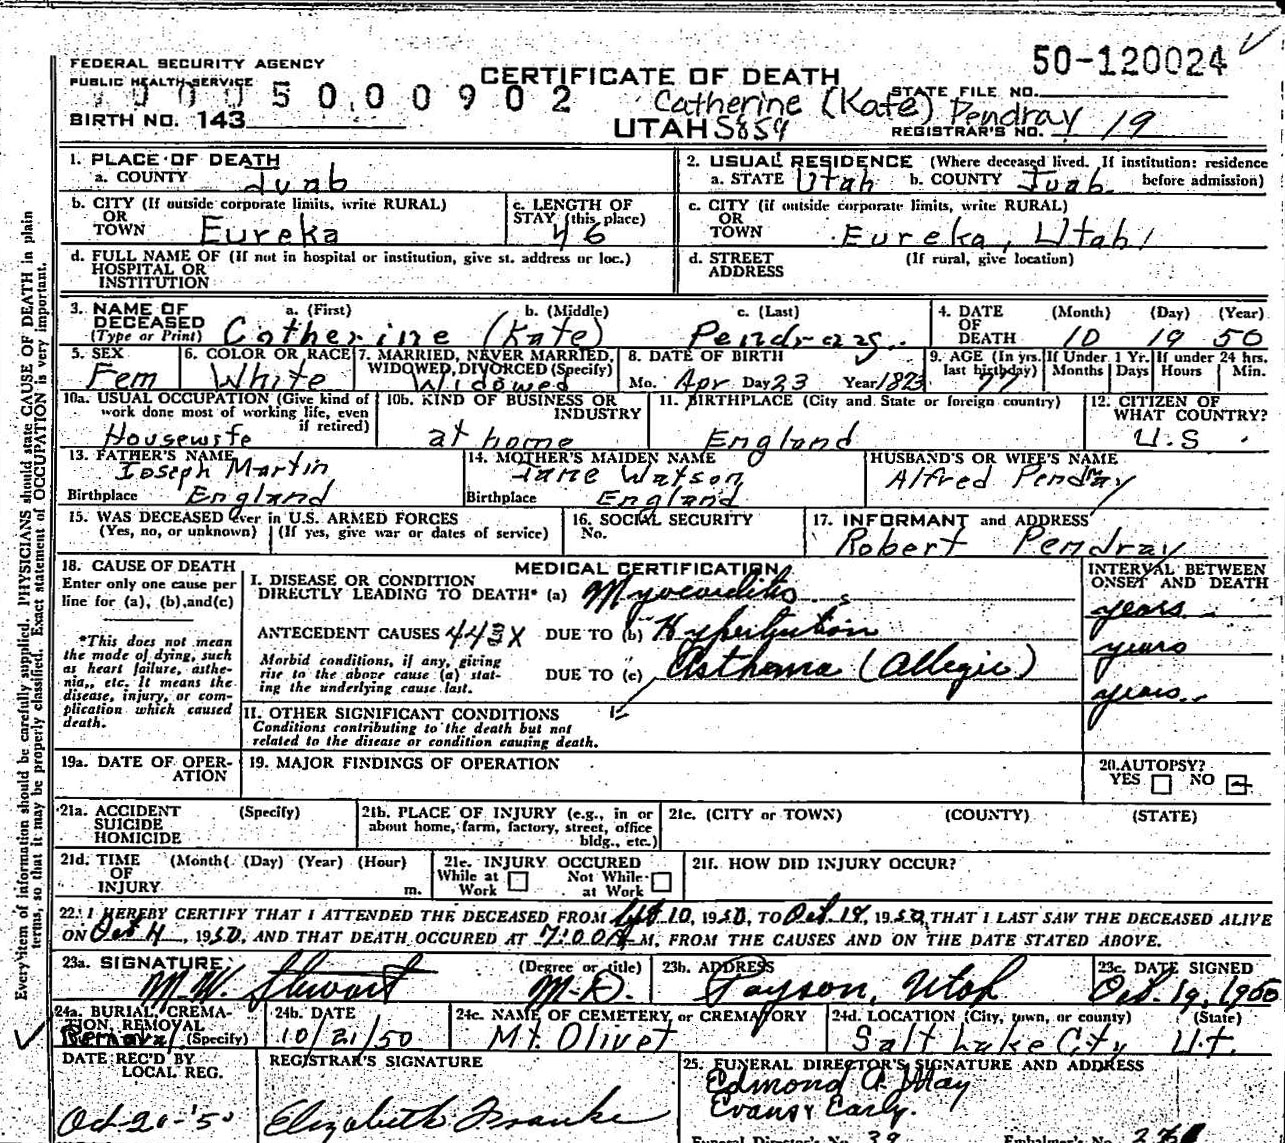 50-120024
FEDERAL SECURITY AGENCY
PUBLIC HEALTH SERVICE
CERTIFICATE OF DEATH
STATE FILE NO.
5 0 0 0 0 9 0 2
Catherine (Kate) Pendray
BIRTH NO. 143
UTAH 5859
REGISTRAR'S NO. 19
1. PLACE OF DEATH
a. COUNTY Juab
2. USUAL RESIDENCE (Where deceased lived. If institution: residence before admission)
a. STATE Utah b. COUNTY Juab
b. CITY (If outside corporate limits, write RURAL)
OR
TOWN Eureka
c. LENGTH OF
STAY (this place)
46
c. CITY (if outside corporate limits, write RURAL)
OR
TOWN Eureka, Utah
d. FULL NAME OF (If not in hospital or institution, give st. address or loc.)
HOSPITAL OR
INSTITUTION
d. STREET (If rural, give location)
ADDRESS
3. NAME OF
DECEASED
(Type or Print)
a. (First) b. (Middle) c. (Last)
Catherine (Kate) Pendray
4. DATE
OF
DEATH
(Month) (Day) (Year)
10 19 50
5. SEX
Fem
6. COLOR OR RACE
White
7. MARRIED, NEVER MARRIED,
WIDOWED, DIVORCED (Specify)
Widowed
8. DATE OF BIRTH
Mo. Apr Day 23 Year 1873
9. AGE (In yrs.
last birthday)
77
If Under 1 Yr.
Months Days
If under 24 hrs.
Hours Min.
10a. USUAL OCCUPATION (Give kind of
work done most of working life, even
if retired)
Housewife
10b. KIND OF BUSINESS OR
INDUSTRY
at home
11. BIRTHPLACE (City and State or foreign country)
England
12. CITIZEN OF
WHAT COUNTRY?
U.S.
13. FATHER'S NAME
Joseph Martin
Birthplace England
14. MOTHER'S MAIDEN NAME
Jane Watson
Birthplace England
HUSBAND'S OR WIFE'S NAME
Alfred Pendray
15. WAS DECEASED ever in U.S. ARMED FORCES
(Yes, no, or unknown) (If yes, give war or dates of service)
16. SOCIAL SECURITY
No.
17. INFORMANT and ADDRESS
Robert Pendray
18. CAUSE OF DEATH
Enter only one cause per
line for (a), (b), and (c)
*This does not mean
the mode of dying, such
as heart failure, asthe-
nia,, etc. It means the
disease, injury, or com-
plication which caused
death.
MEDICAL CERTIFICATION
I. DISEASE OR CONDITION
DIRECTLY LEADING TO DEATH* (a) Myocarditis
ANTECEDENT CAUSES 443X DUE TO (b) Hypertension
Morbid conditions, if any, giving
rise to the above cause (a) stat-
ing the underlying cause last.
DUE TO (c) Asthma (Allegic)
II. OTHER SIGNIFICANT CONDITIONS
Conditions contributing to the death but not
related to the disease or condition causing death.
INTERVAL BETWEEN
ONSET AND DEATH
years
years
years
19a. DATE OF OPER-
ATION
19. MAJOR FINDINGS OF OPERATION
20. AUTOPSY?
YES NO
21a. ACCIDENT (Specify)
SUICIDE
HOMICIDE
21b. PLACE OF INJURY (e.g., in or
about home, farm, factory, street, office
bldg., etc.)
21c. (CITY or TOWN) (COUNTY) (STATE)
21d. TIME (Month) (Day) (Year) (Hour)
OF
INJURY m.
21e. INJURY OCCURED
While at Work Not While at Work
21f. HOW DID INJURY OCCUR?
22. I HEREBY CERTIFY THAT I ATTENDED THE DECEASED FROM Sept 10, 1950, TO Oct. 19, 1950, THAT I LAST SAW THE DECEASED ALIVE
ON Oct 4, 1950, AND THAT DEATH OCCURED AT 7:00 A M, FROM THE CAUSES AND ON THE DATE STATED ABOVE.
23a. SIGNATURE (Degree or title)
M. W. Stewart M.D.
23b. ADDRESS
Payson, Utah
23c. DATE SIGNED
Oct. 19, 1950
24a. BURIAL, CREMA-
TION, REMOVAL
(Specify) Removal
24b. DATE
10/21/50
24c. NAME OF CEMETERY, or CREMATORY
Mt. Olivet
24d. LOCATION (City, town, or county) (State)
Salt Lake City Ut.
DATE REC'D BY
LOCAL REG.
Oct-20-'50
REGISTRAR'S SIGNATURE
Elizabeth Franke
25. FUNERAL DIRECTOR'S SIGNATURE AND ADDRESS
Edmond A. May
Evans & Early.
Funeral Director's No. 39 Embalmer's No.
Every item of information should be carefully supplied. PHYSICIANS should state CAUSE OF DEATH in plain
terms, so that it may be properly classified. Exact statement of OCCUPATION is very important.